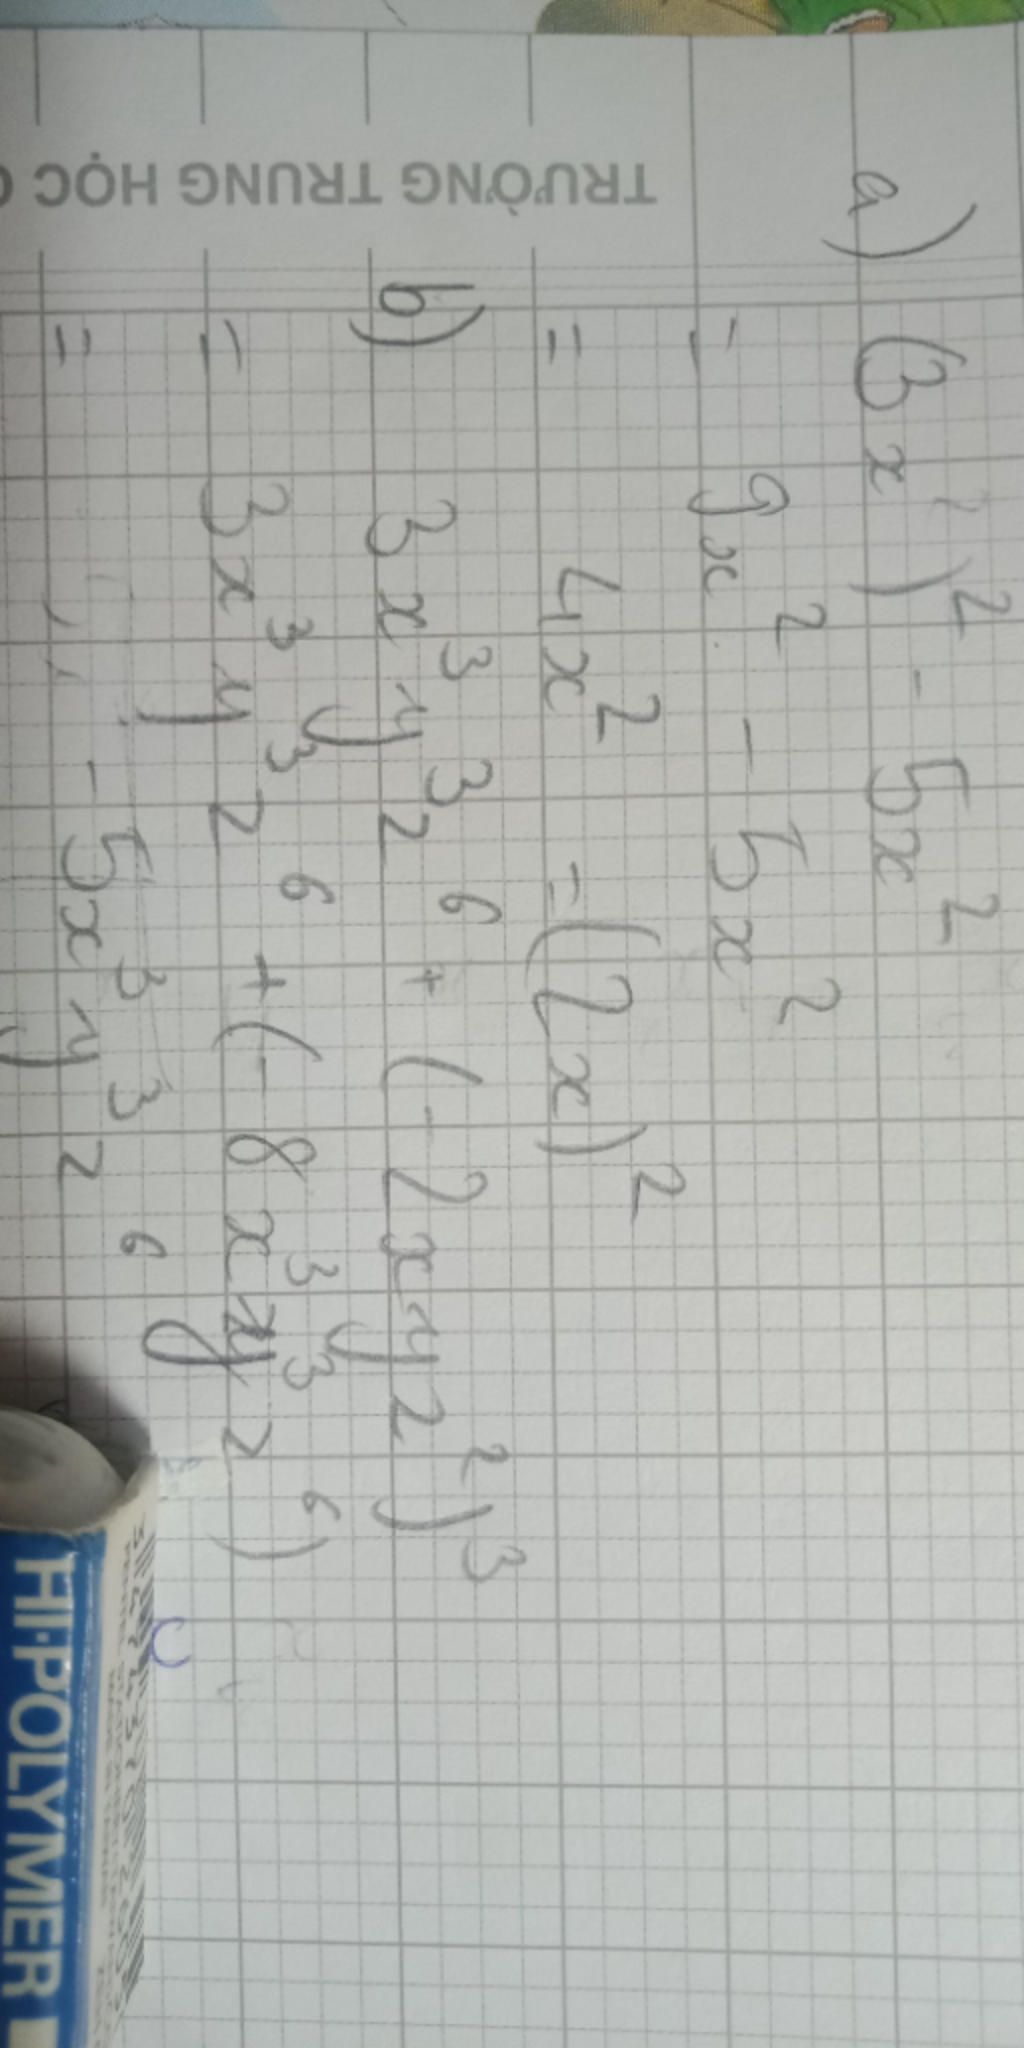 TRƯỜNG TRUNG HỌC
a) (3x²)² - 5x²
= 9x² - 5x²
= 4x² = (2x)²
b) 3x³y³z⁶ + (-2xyz²)³
= 3x³y³z⁶ + (-8x³y³z⁶)
= -5x³y³z⁶
HI-POLYMER